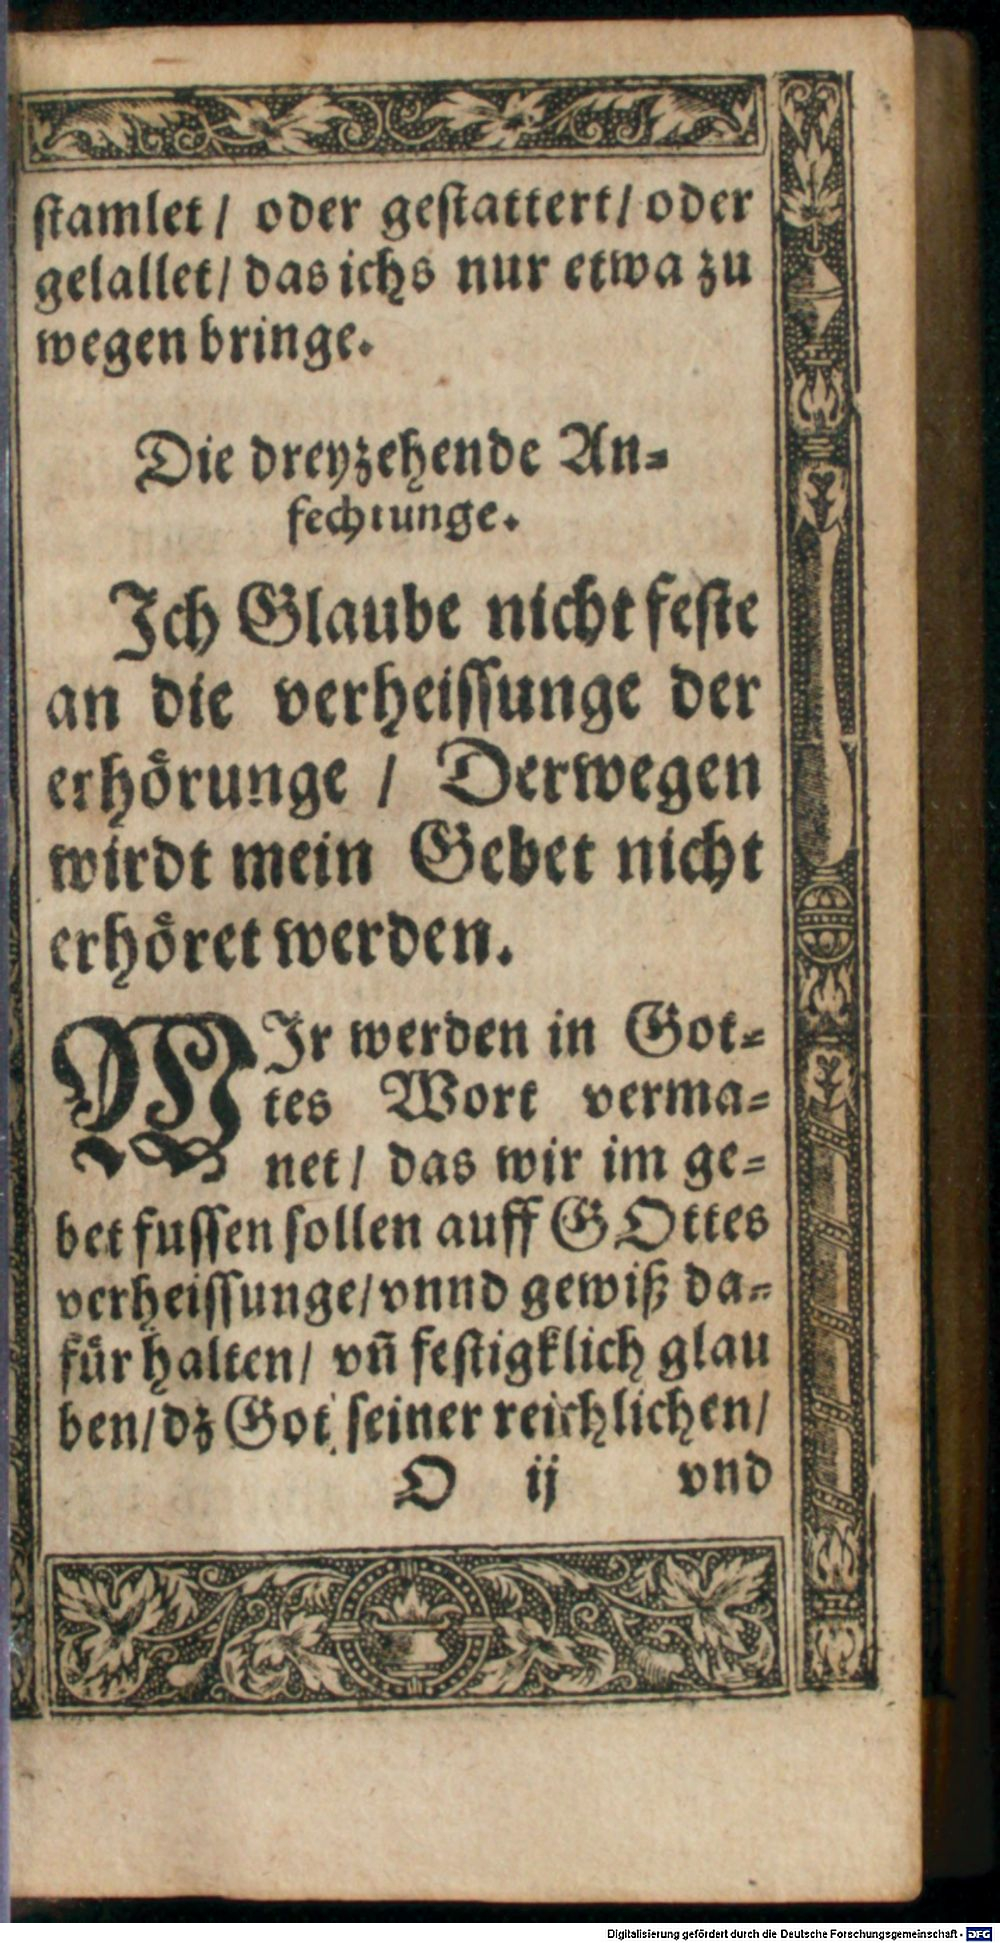 stamlet / oder gestattert / oder
gelallet / das ichs nur etwa zu
wegen bringe.
Die dreyzehende An=
fechtunge.
Ich Glaube nicht feste
an die verheissunge der
erhörunge / Derwegen
wirdt mein Gebet nicht
erhöret werden.
WIr werden in Got=
tes Wort verma=
net / das wir im ge=
bet fussen sollen auff GOttes
verheissunge / vnnd gewiß da=
für halten / vñ festigklich glau
ben / dz Got seiner reichlichen /
O ij vnd
Digitalisierung gefördert durch die Deutsche Forschungsgemeinschaft - DFG